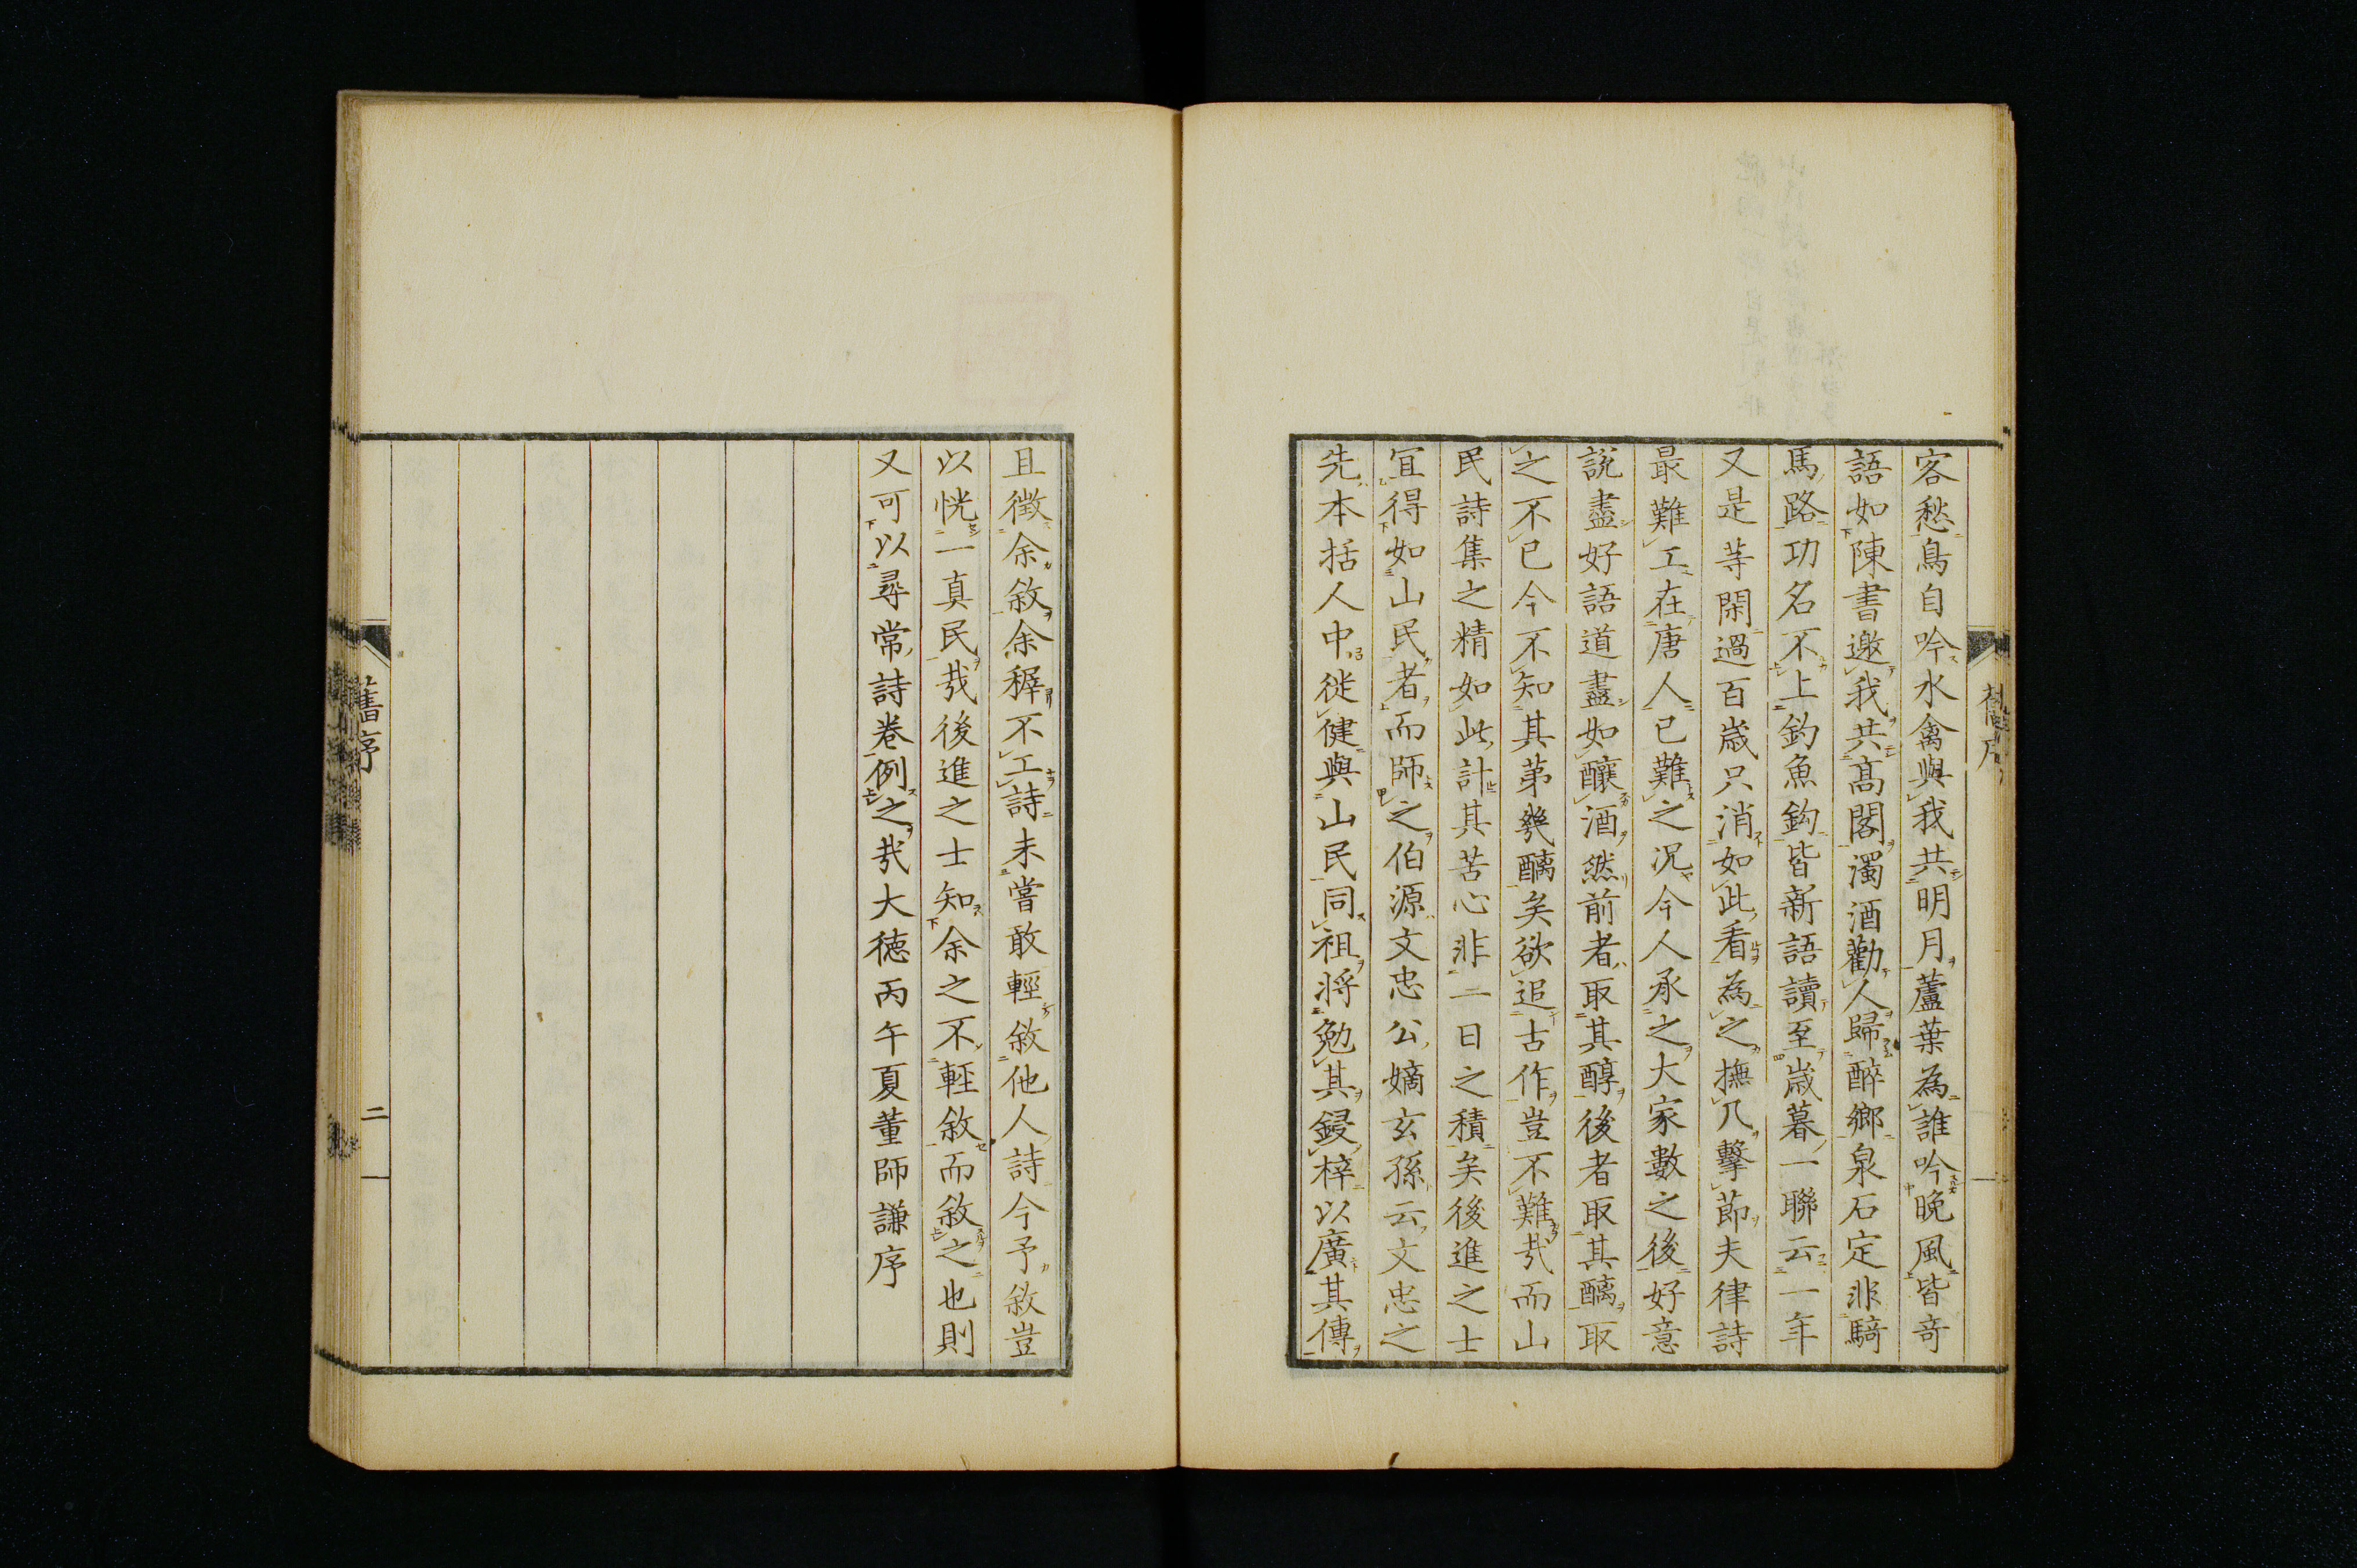 客愁鳥自吟水禽與我共明月蘆葉為誰吟晩風皆奇
語如陳書邀我共髙閣濁酒勸人歸醉鄉泉石定非騎
馬路功名不上釣魚鈎皆新語讀至歳暮一聯云一年
又是等閑過百歳只消如此看為之撫几擊節夫律詩
最難工在唐人已難之况今人承之大家數之後好意
說盡好語道盡如釀酒然前者取其醇後者取其醨取
之不已今不知其苐幾醨矣欲追古作豈不難㢤而山
民詩集之精如此計其苦心非一日之積矣後進之士
宜得如山民者而師之伯源文忠公嫡玄孫云文忠之
先本括人中徙健與山民同祖將勉其鋟梓以廣其傳
舊序
且徵余敘余穉不工詩未嘗敢輕敘他人詩今予敘豈
以恍一真民㢤後進之士知余之不輕敘而敘之也則
又可以尋常詩卷例之㢤大德丙午夏董師謙序
舊序
二